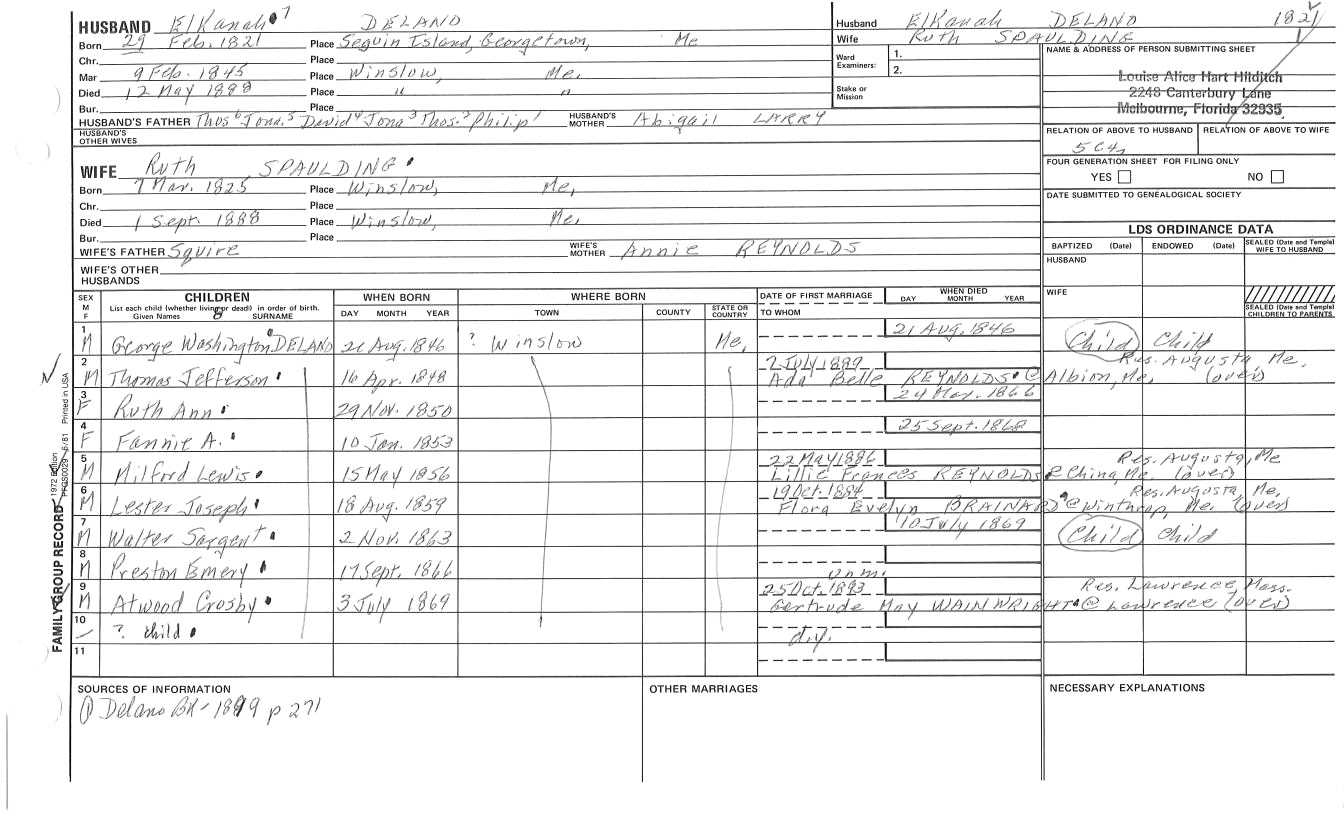 HUSBAND Elkanah 7 DELANO
Born 29 Feb. 1821 Place Seguin Island, Georgetown, Me
Chr. Place
Mar 9 Feb. 1845 Place Winslow, Me,
Died 12 May 1888 Place " "
Bur. Place
HUSBAND'S FATHER Thos 6 Jona. 5 David 4 Jona 3 Thos. 2 Philip 1 HUSBAND'S MOTHER Abigail LARRY
HUSBAND'S OTHER WIVES
WIFE Ruth SPAULDING
Born 7 Mar. 1825 Place Winslow, Me,
Chr. Place
Died 1 Sept. 1888 Place Winslow, Me,
Bur. Place
WIFE'S FATHER Squire WIFE'S MOTHER Annie REYNOLDS
WIFE'S OTHER HUSBANDS
Husband Elkanah DELANO 1821
Wife Ruth SPAULDING
Ward Examiners: 1.
2.
Stake or Mission
NAME & ADDRESS OF PERSON SUBMITTING SHEET
Louise Alice Hart Hilditch
2248 Canterbury Lane
Melbourne, Florida 32935
RELATION OF ABOVE TO HUSBAND RELATION OF ABOVE TO WIFE
FOUR GENERATION SHEET FOR FILING ONLY
YES NO
DATE SUBMITTED TO GENEALOGICAL SOCIETY
LDS ORDINANCE DATA
BAPTIZED (Date) ENDOWED (Date) SEALED (Date and Temple) WIFE TO HUSBAND
HUSBAND
WIFE
SEALED (Date and Temple) CHILDREN TO PARENTS
SEX M F CHILDREN WHEN BORN WHERE BORN DATE OF FIRST MARRIAGE WHEN DIED
List each child (whether living or dead) in order of birth.
Given Names SURNAME DAY MONTH YEAR TOWN COUNTY STATE OR COUNTRY TO WHOM DAY MONTH YEAR
1 21 Aug. 1846
M George Washington DELANO 21 Aug. 1846 ? Winslow Me, Child Child
2 2 July 1889 Res. Augusta, Me.
M Thomas Jefferson 16 Apr. 1848 Ada Belle REYNOLDS @ Albion, Me, (over)
3 24 Mar. 1866
F Ruth Ann 29 Nov. 1850
4 25 Sept. 1868
F Fannie A. 10 Jan. 1853
5 22 May 1886 Res. Augusta, Me
M Milford Lewis 15 May 1856 Lillie Frances REYNOLDS @ China, Me. (over)
6 19 Oct. 1884 Res. Augusta, Me,
M Lester Joseph 18 Aug. 1859 Flora Evelyn BRAINARD @ Winthrop, Me. (over)
7 10 July 1869
M Walter Sargent 2 Nov. 1863 Child Child
8
M Preston Emery 17 Sept. 1866 unm.
9 25 Oct. 1893 Res. Lawrence, Mass.
M Atwood Crosby 3 July 1869 Gertrude May WAINWRIGHT @ Lawrence (over)
10
? child d.y.
11
SOURCES OF INFORMATION
① Delano Bk - 1899 p 271
OTHER MARRIAGES
NECESSARY EXPLANATIONS
FAMILY GROUP RECORD 1972 Edition
Printed in USA